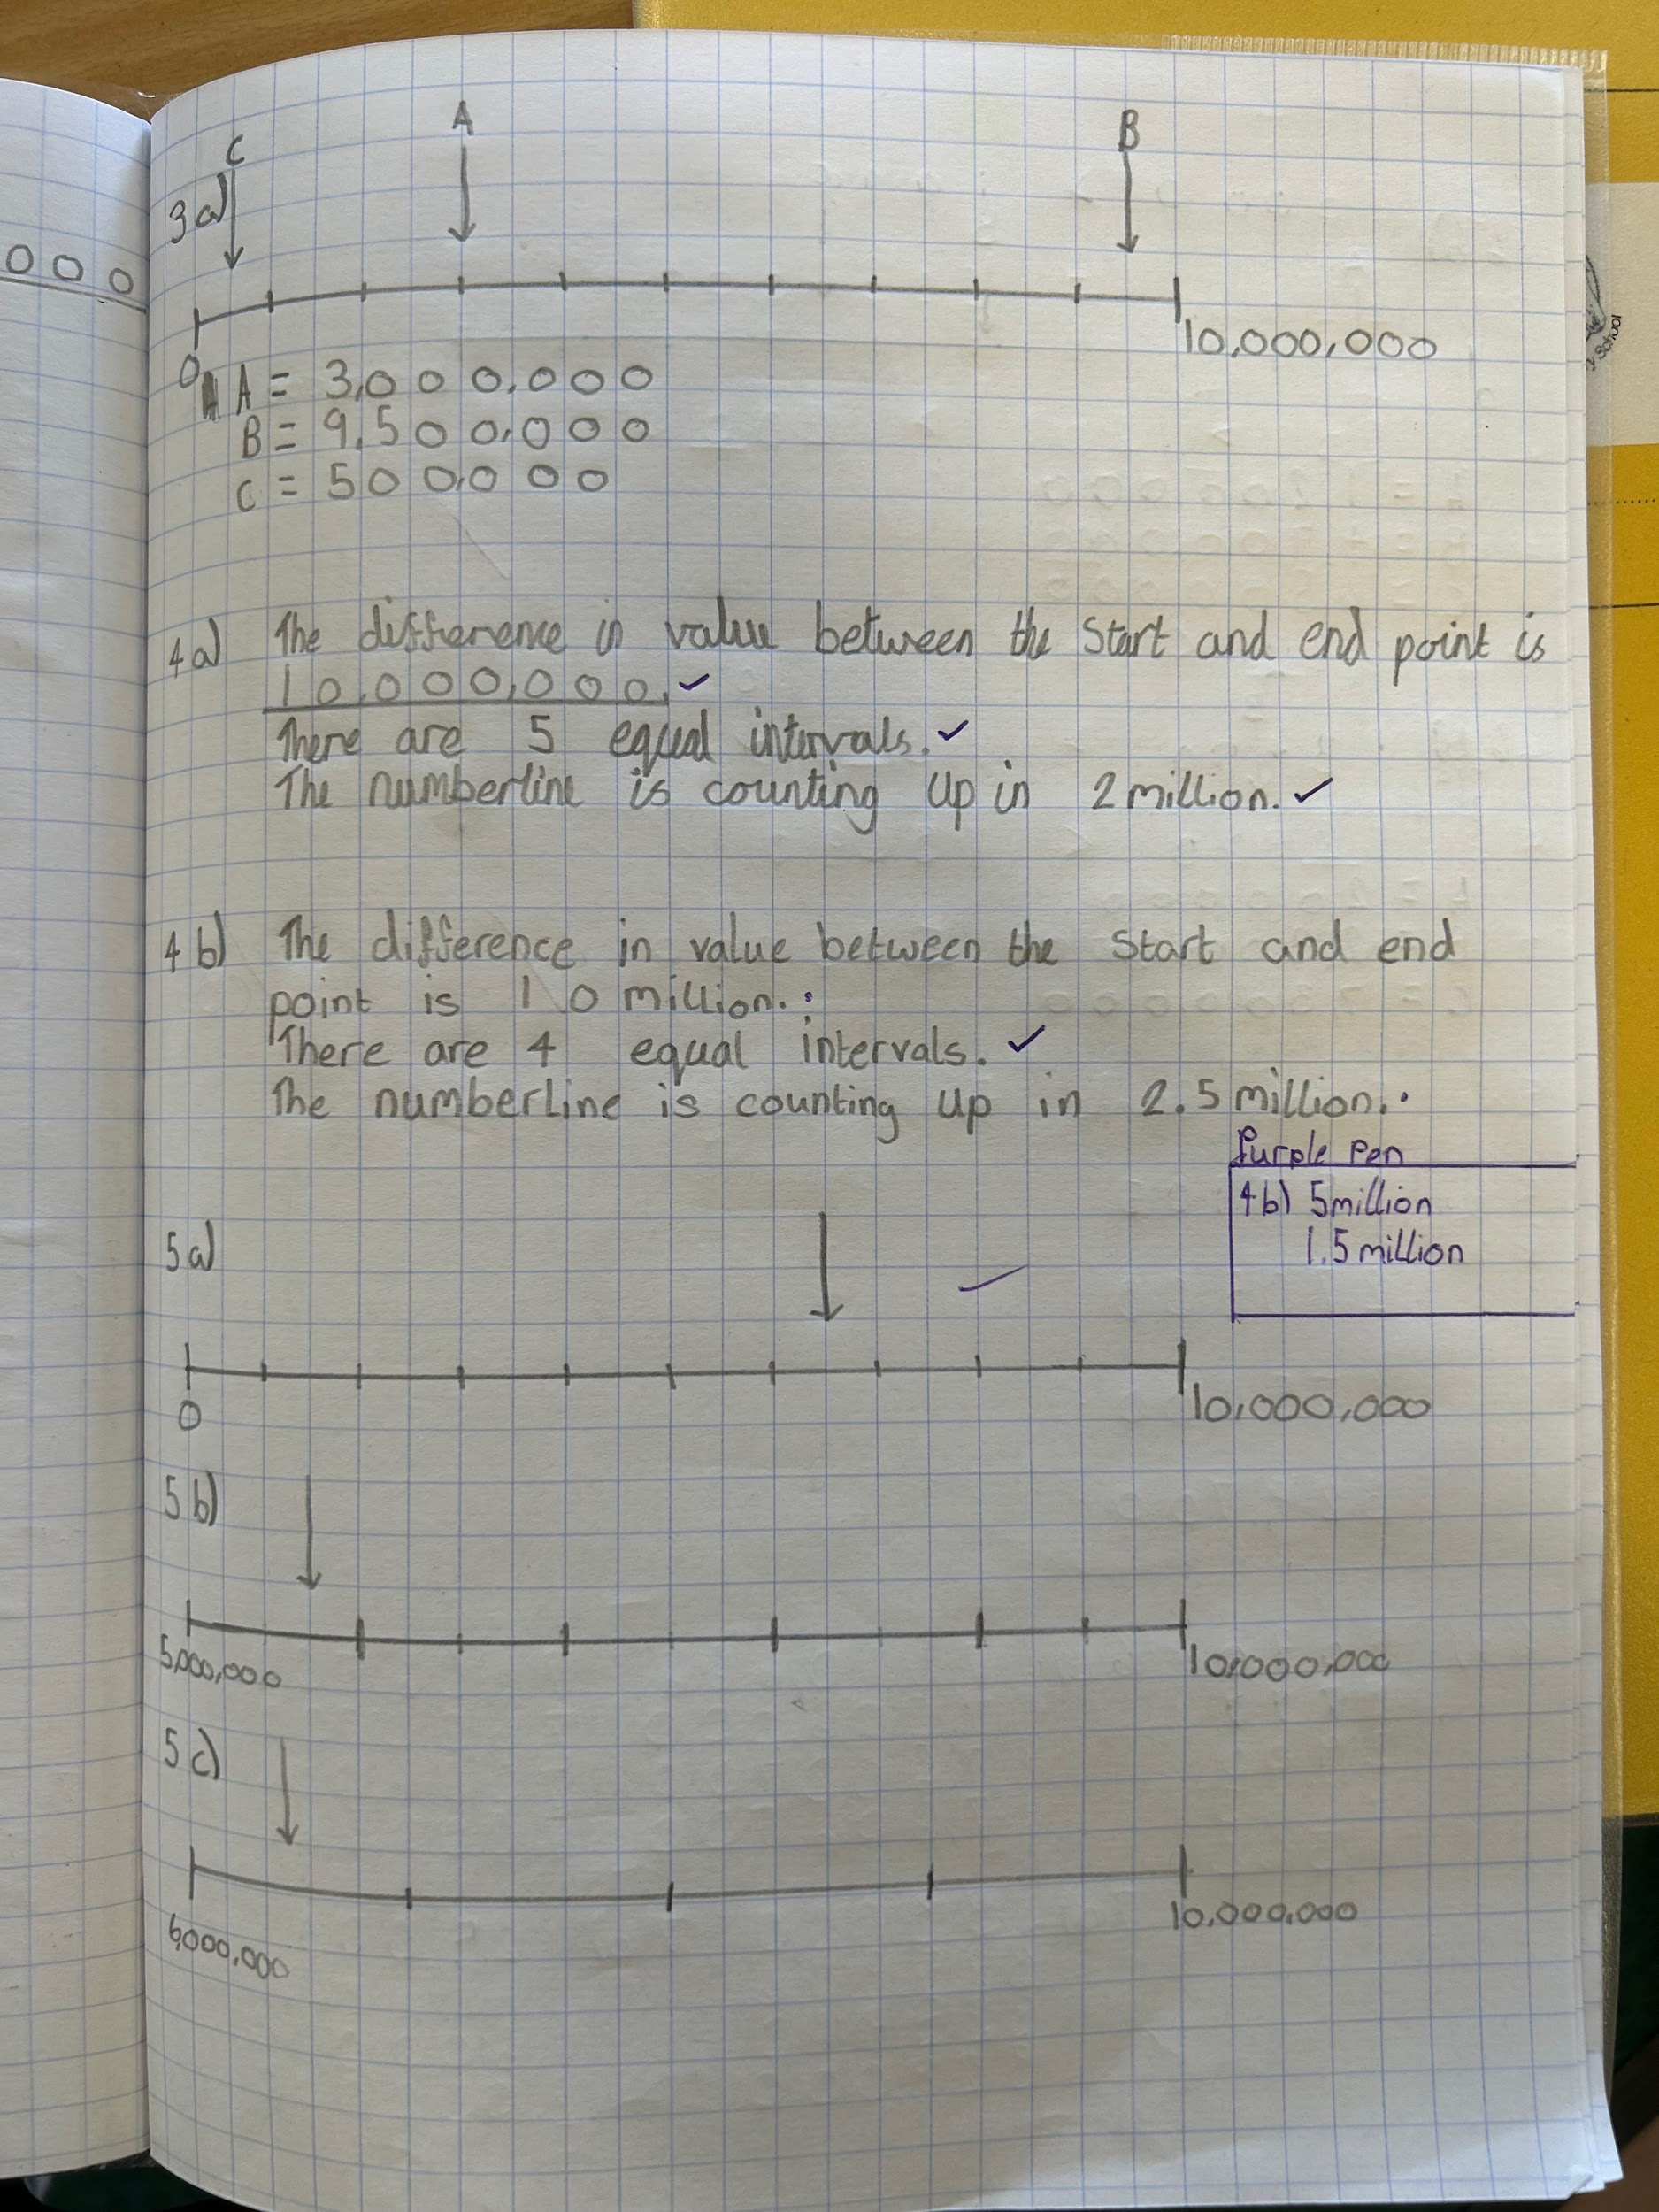 000
C
A
B
3a)
0
10,000,000
A = 3,000,000
B = 9,500,000
C = 500,000
4a) The difference in value between the start and end point is
10,000,000.
There are 5 equal intervals.
The numberline is counting up in 2 million.
4b) The difference in value between the start and end
point is 10 million.
There are 4 equal intervals.
The numberline is counting up in 2.5 million.
Purple Pen
4b) 5million
1.5 million
5a)
0
10,000,000
5b)
5,000,000
10,000,000
5c)
6,000,000
10,000,000
School